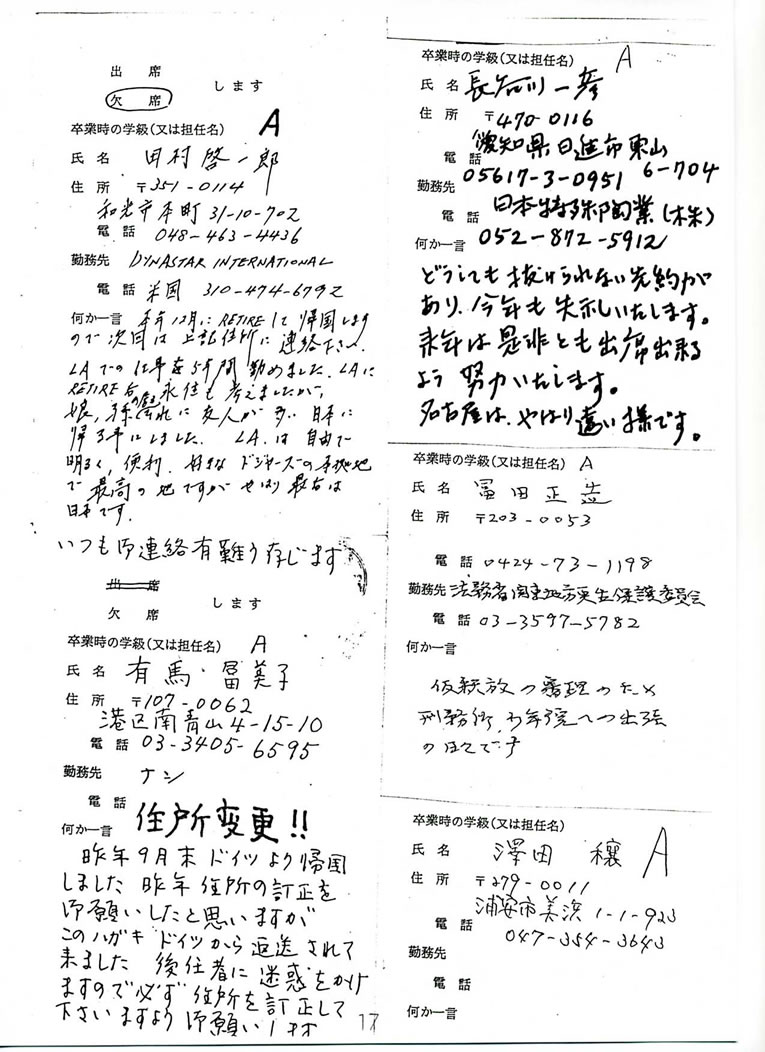 出席
欠席
します
卒業時の学級(又は担任名) A
氏名 田村啓一郎
住所 〒351-0114
和光市本町31-10-702
電話 048-463-4436
勤務先 DYNASTAR INTERNATIONAL
電話 米国 310-474-6792
何か一言 本年12月にRETIREして帰国します
ので次回は上記住所に連絡下さい
LAでの仕事を5年間勤めました。LAに
RETIRE后永住も考えましたが、
娘,孫の居る それに友人が多い日本に
帰る事にしました. LA.は自由で
明るく,便利.好きなドジャースの本拠地
で最高の地ですがやはり最右は
日本です.
いつも御連絡有難う存じます
出席
欠席
します
卒業時の学級(又は担任名) A
氏名 有馬・冨美子
住所 〒107-0062
港区南青山4-15-10
電話 03-3405-6595
勤務先 ナシ
電話
何か一言 住戸所変更!!
昨年9月末ドイツより帰国
しました 昨年住所の訂正を
御願いしたと思いますが
このハガキドイツから返送されて
来ました 後任者に迷惑をかけ
ますので必ず住所を訂正して
下さいますより御願いします
17
卒業時の学級(又は担任名) A
氏名 長谷川一彦
住所 〒470-0116
愛知県日進市東山
6-704
電話 05617-3-0951
勤務先 日本特殊陶業(株)
電話 052-872-5912
何か一言
どうしても抜けられない先約が
あり、今年も失礼いたします。
来年は是非とも出席出来る
よう努力いたします。
名古屋は、やはり遠い様です。
卒業時の学級(又は担任名) A
氏名 冨田正造
住所 〒203-0053
電話 0424-73-1198
勤務先 法務省関東地方更生保護委員会
電話 03-3597-5782
何か一言
仮釈放の審理のため
刑務所、少年院への出張
の日々です
卒業時の学級(又は担任名) A
氏名 澤田 穣
住所 〒279-0011
浦安市美浜1-1-923
電話 047-354-3643
勤務先
電話
何か一言